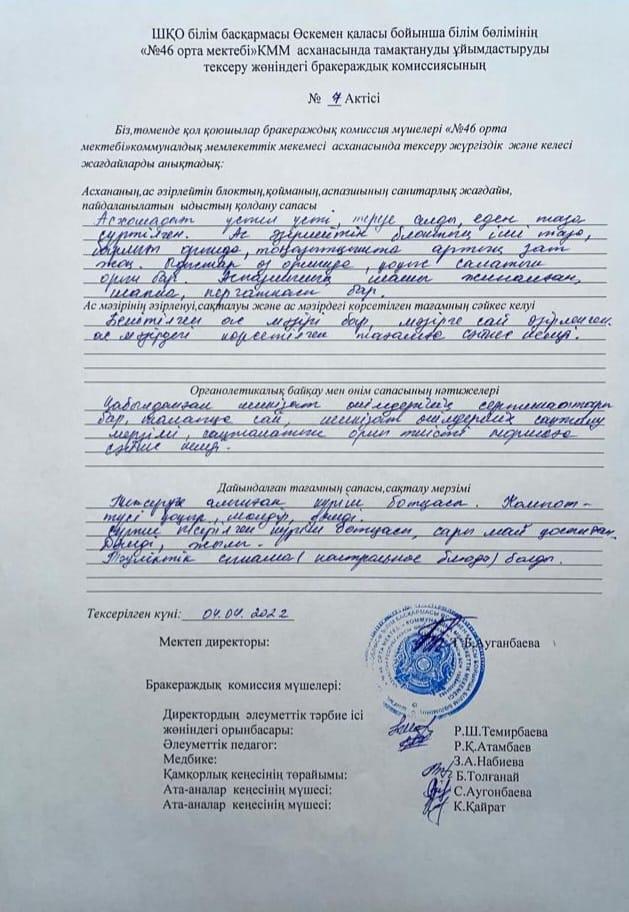 ШҚО білім басқармасы Өскемен қаласы бойынша білім бөлімінің
«№46 орта мектебі»КММ асханасында тамақтануды ұйымдастыруды
тексеру жөніндегі бракераждық комиссиясының
№ 7 Актісі
Біз,төменде қол қоюшылар бракераждық комиссия мүшелері «№46 орта
мектебі»коммуналдық мемлекеттік мекемесі асханасында тексеру жүргіздік және келесі
жағдайларды анықтадық:
Асхананың,ас әзірлейтін блоктың,қойманың,аспазшының санитарлық жағдайы,
пайдаланылатын ыдыстың қолдану сапасы
үстел үсті, терезе алды, еден таза
сүртілген. Ас әзірлейтін блоктың іші таза,
орнында, тоңазытқышта артық зат
жоқ. Ыдыстар өз орнында, сақтайтын
орны бар. Аспазшының шашы жиналған,
бар.
Ас мәзірінің әзірленуі,сақталуы және ас мәзірдегі көрсетілген тағамның сәйкес келуі
Бекітілген ас мәзірі бар, мәзірге сай әзірленген.
ас мәзірдегі көрсетілген тағамға сәйкес келеді.
Органолетикалық байқау мен өнім сапасының нәтижелері
Қабылданған шикізат өнімдерінің сертификаттары
бар, талапқа сай, шикізат өнімдерінің сақталу
мерзімі, сақталатын орны тиісті нормаға
сәйкес келеді.
Дайындалған тағамның сапасы,сақталу мерзімі
Тексеруге алынған күріш ботқасы. Компот-
түсі мөлдір, дәмді.
пісірілген күріш ботқасы, сары май қосылған.
Дәмді, жылы.
Тәуліктік сынама (контрольное блюдо) болды.
Тексерілген күні: 04.04.2022
Мектеп директоры: Г.Б.Ауганбаева
Бракераждық комиссия мүшелері:
Директордың әлеуметтік тәрбие ісі
жөніндегі орынбасары: Р.Ш.Темирбаева
Әлеуметтік педагог: Р.Қ.Атамбаев
Медбике: З.А.Набиева
Қамқорлық кеңесінің төрайымы: Б.Толғанай
Ата-аналар кеңесінің мүшесі: С.Аугонбаева
Ата-аналар кеңесінің мүшесі: К.Қайрат